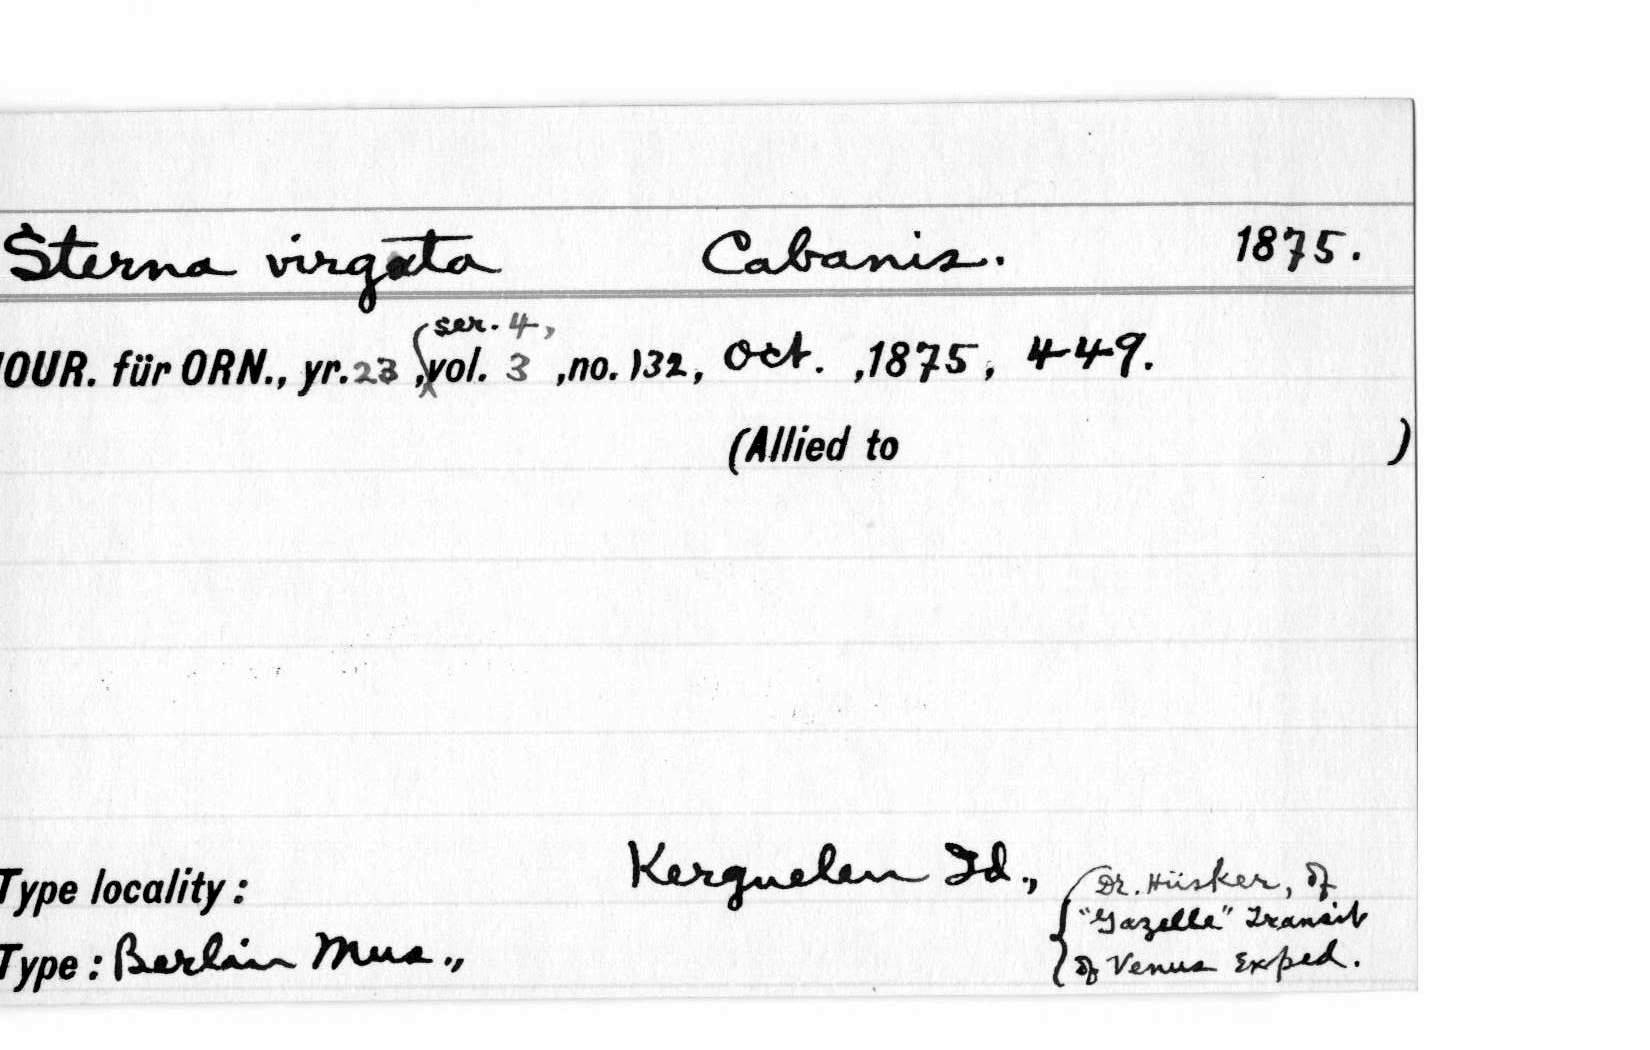 Sterna virgata Cabanis. 1875.
ser. 4,
JOUR. für ORN., yr. 23, vol. 3, no. 132, Oct. , 1875, 449.
(Allied to )
Type locality: Kerguelen Id.,
Dr. Hüsker, of
"Gazelle" Transit
of Venus Exped.
Type: Berlin Mus.,